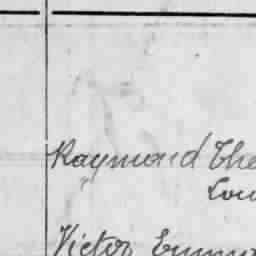 Raymond The
Lou
Victor Emma